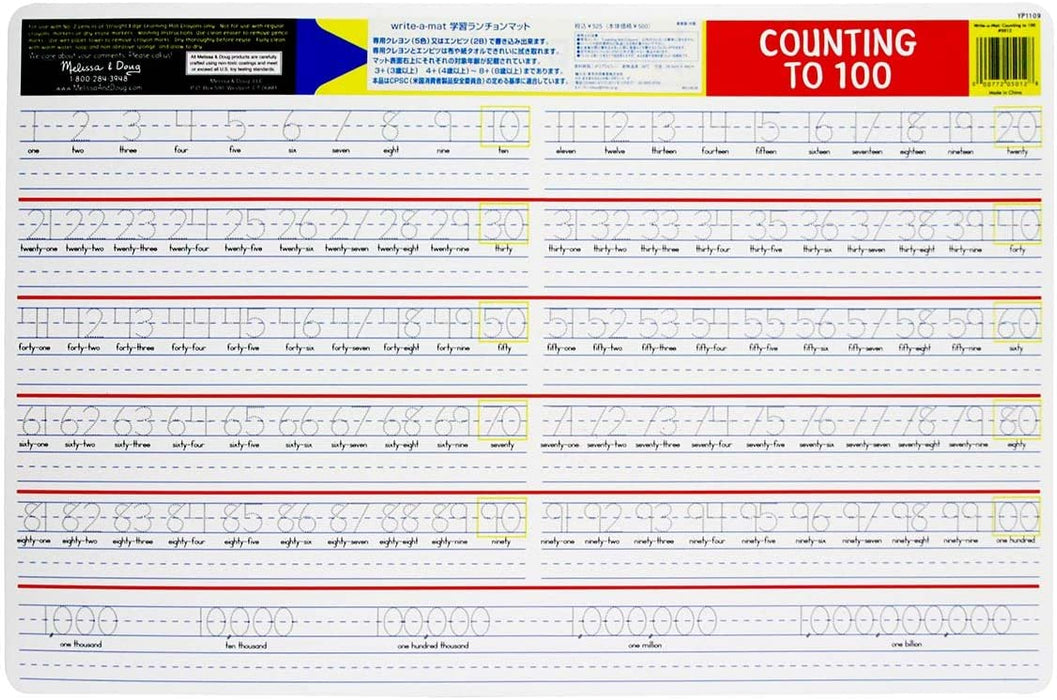 For use with No. 2 pencils or Straight Edge Coloring Mat Crayons only. Not for use with regular
crayons, markers or dry erase markers. Washing Instructions: Use clean eraser to remove pencil
marks. Use wet paper towel to remove crayon marks. Dry thoroughly before reuse. Fully clean
with warm water, soap and non abrasive sponge, and allow to dry.
We care about your comments. Please call us!
Melissa & Doug
1-800-284-3948
www.MelissaAndDoug.com
All Melissa & Doug products are carefully
crafted using non-toxic coatings and meet
or exceed all U.S. toy testing standards.
Melissa & Doug, LLC
P.O. Box 590, Westport, CT 06881
write-a-mat 学習ランチョンマット
専用クレヨン(5色)又はエンピツ(2B)で書き込み出来ます。
専用クレヨンとエンピツは布や紙タオルできれいに拭き取れます。
マット表面右上にそれぞれの対象年齢が記載されています。
3+(3歳以上) 4+(4歳以上)~ 8+(8歳以上)まであります。
本品はCPSC(米国消費者製品安全委員会)の定める基準に適合しています。
税込¥525(本体価格¥500)
COUNTING
TO 100
YP1109
Write-a-Mat: Counting to 100
#5012
0 00772 05012 8
Made in China
1 2 3 4 5 6 7 8 9 10
one two three four five six seven eight nine ten
11 12 13 14 15 16 17 18 19 20
eleven twelve thirteen fourteen fifteen sixteen seventeen eighteen nineteen twenty
21 22 23 24 25 26 27 28 29 30
twenty-one twenty-two twenty-three twenty-four twenty-five twenty-six twenty-seven twenty-eight twenty-nine thirty
31 32 33 34 35 36 37 38 39 40
thirty-one thirty-two thirty-three thirty-four thirty-five thirty-six thirty-seven thirty-eight thirty-nine forty
41 42 43 44 45 46 47 48 49 50
forty-one forty-two forty-three forty-four forty-five forty-six forty-seven forty-eight forty-nine fifty
51 52 53 54 55 56 57 58 59 60
fifty-one fifty-two fifty-three fifty-four fifty-five fifty-six fifty-seven fifty-eight fifty-nine sixty
61 62 63 64 65 66 67 68 69 70
sixty-one sixty-two sixty-three sixty-four sixty-five sixty-six sixty-seven sixty-eight sixty-nine seventy
71 72 73 74 75 76 77 78 79 80
seventy-one seventy-two seventy-three seventy-four seventy-five seventy-six seventy-seven seventy-eight seventy-nine eighty
81 82 83 84 85 86 87 88 89 90
eighty-one eighty-two eighty-three eighty-four eighty-five eighty-six eighty-seven eighty-eight eighty-nine ninety
91 92 93 94 95 96 97 98 99 100
ninety-one ninety-two ninety-three ninety-four ninety-five ninety-six ninety-seven ninety-eight ninety-nine one hundred
1,000 10,000 100,000 1,000,000 1,000,000,000
one thousand ten thousand one hundred thousand one million one billion